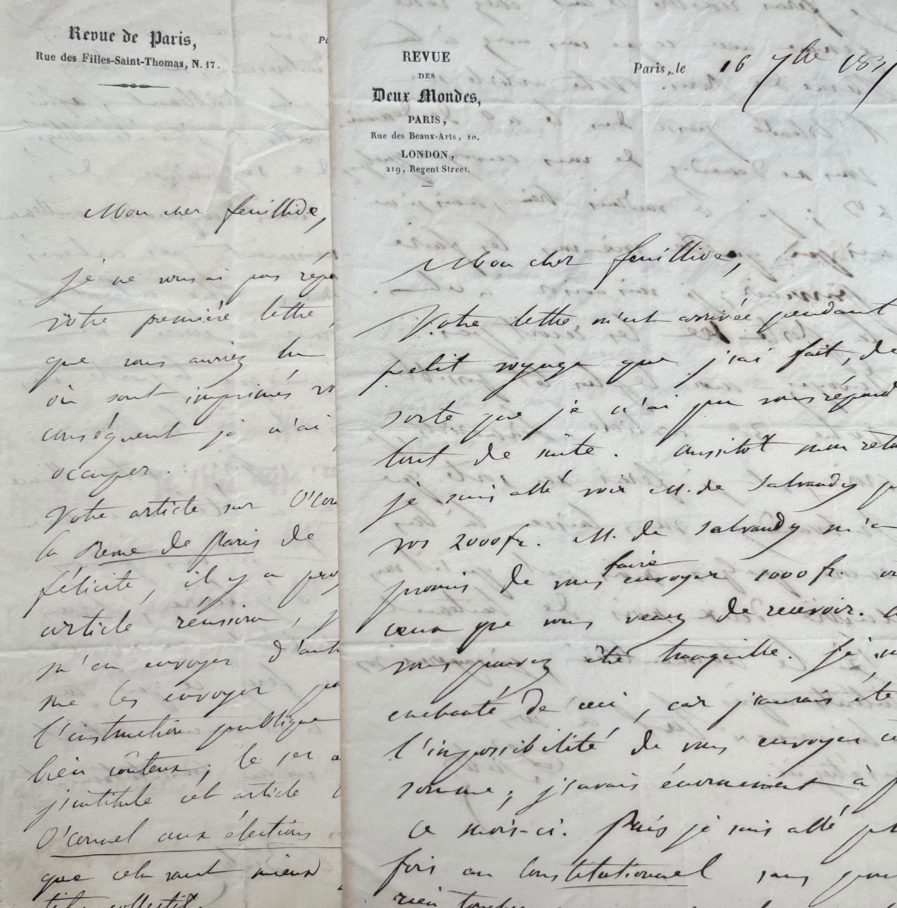 Revue de Paris,
Rue des Filles-Saint-Thomas, N. 17.
Mon cher feuillide,
je ne vous ai pas
votre première lettre,
que vous auriez lu
où sont imprimés
conséquent je n'ai
occuper.
Votre article sur O'Con
la Revue de Paris de
félicite, il y a
article réussira,
m'en envoyer d'aut
me les envoyer
l'instruction publique
bien conteux; le 1er a
j'intitule cet article
O'Connel aux élections
que cela vaut mieux
titre collectif.
REVUE
DES
Deux Mondes,
PARIS,
Rue des Beaux-Arts, 10.
LONDON,
219, Regent Street.
Paris, le 16 7bre 183
Mon cher feuillide,
Votre lettre m'est arrivée pendant
petit voyage que j'ai fait, de
sorte que je n'ai pu vous répond
tout de suite. aussitôt mon reto
je suis allé voir M. de Salvandy p
vos 2000 fr. M. de Salvandy m'a
promis de vous faire envoyer 1000 fr. ou
ceux que vous venez de recevoir.
vous pouvez être tranquille. Je
enchanté de ceci, car j'aurais été
l'impossibilité de vous envoyer
somme; j'avais énormément à p
ce mois-ci. Puis je suis allé pl
fois au Constitutionnel sans pou
rien toucher